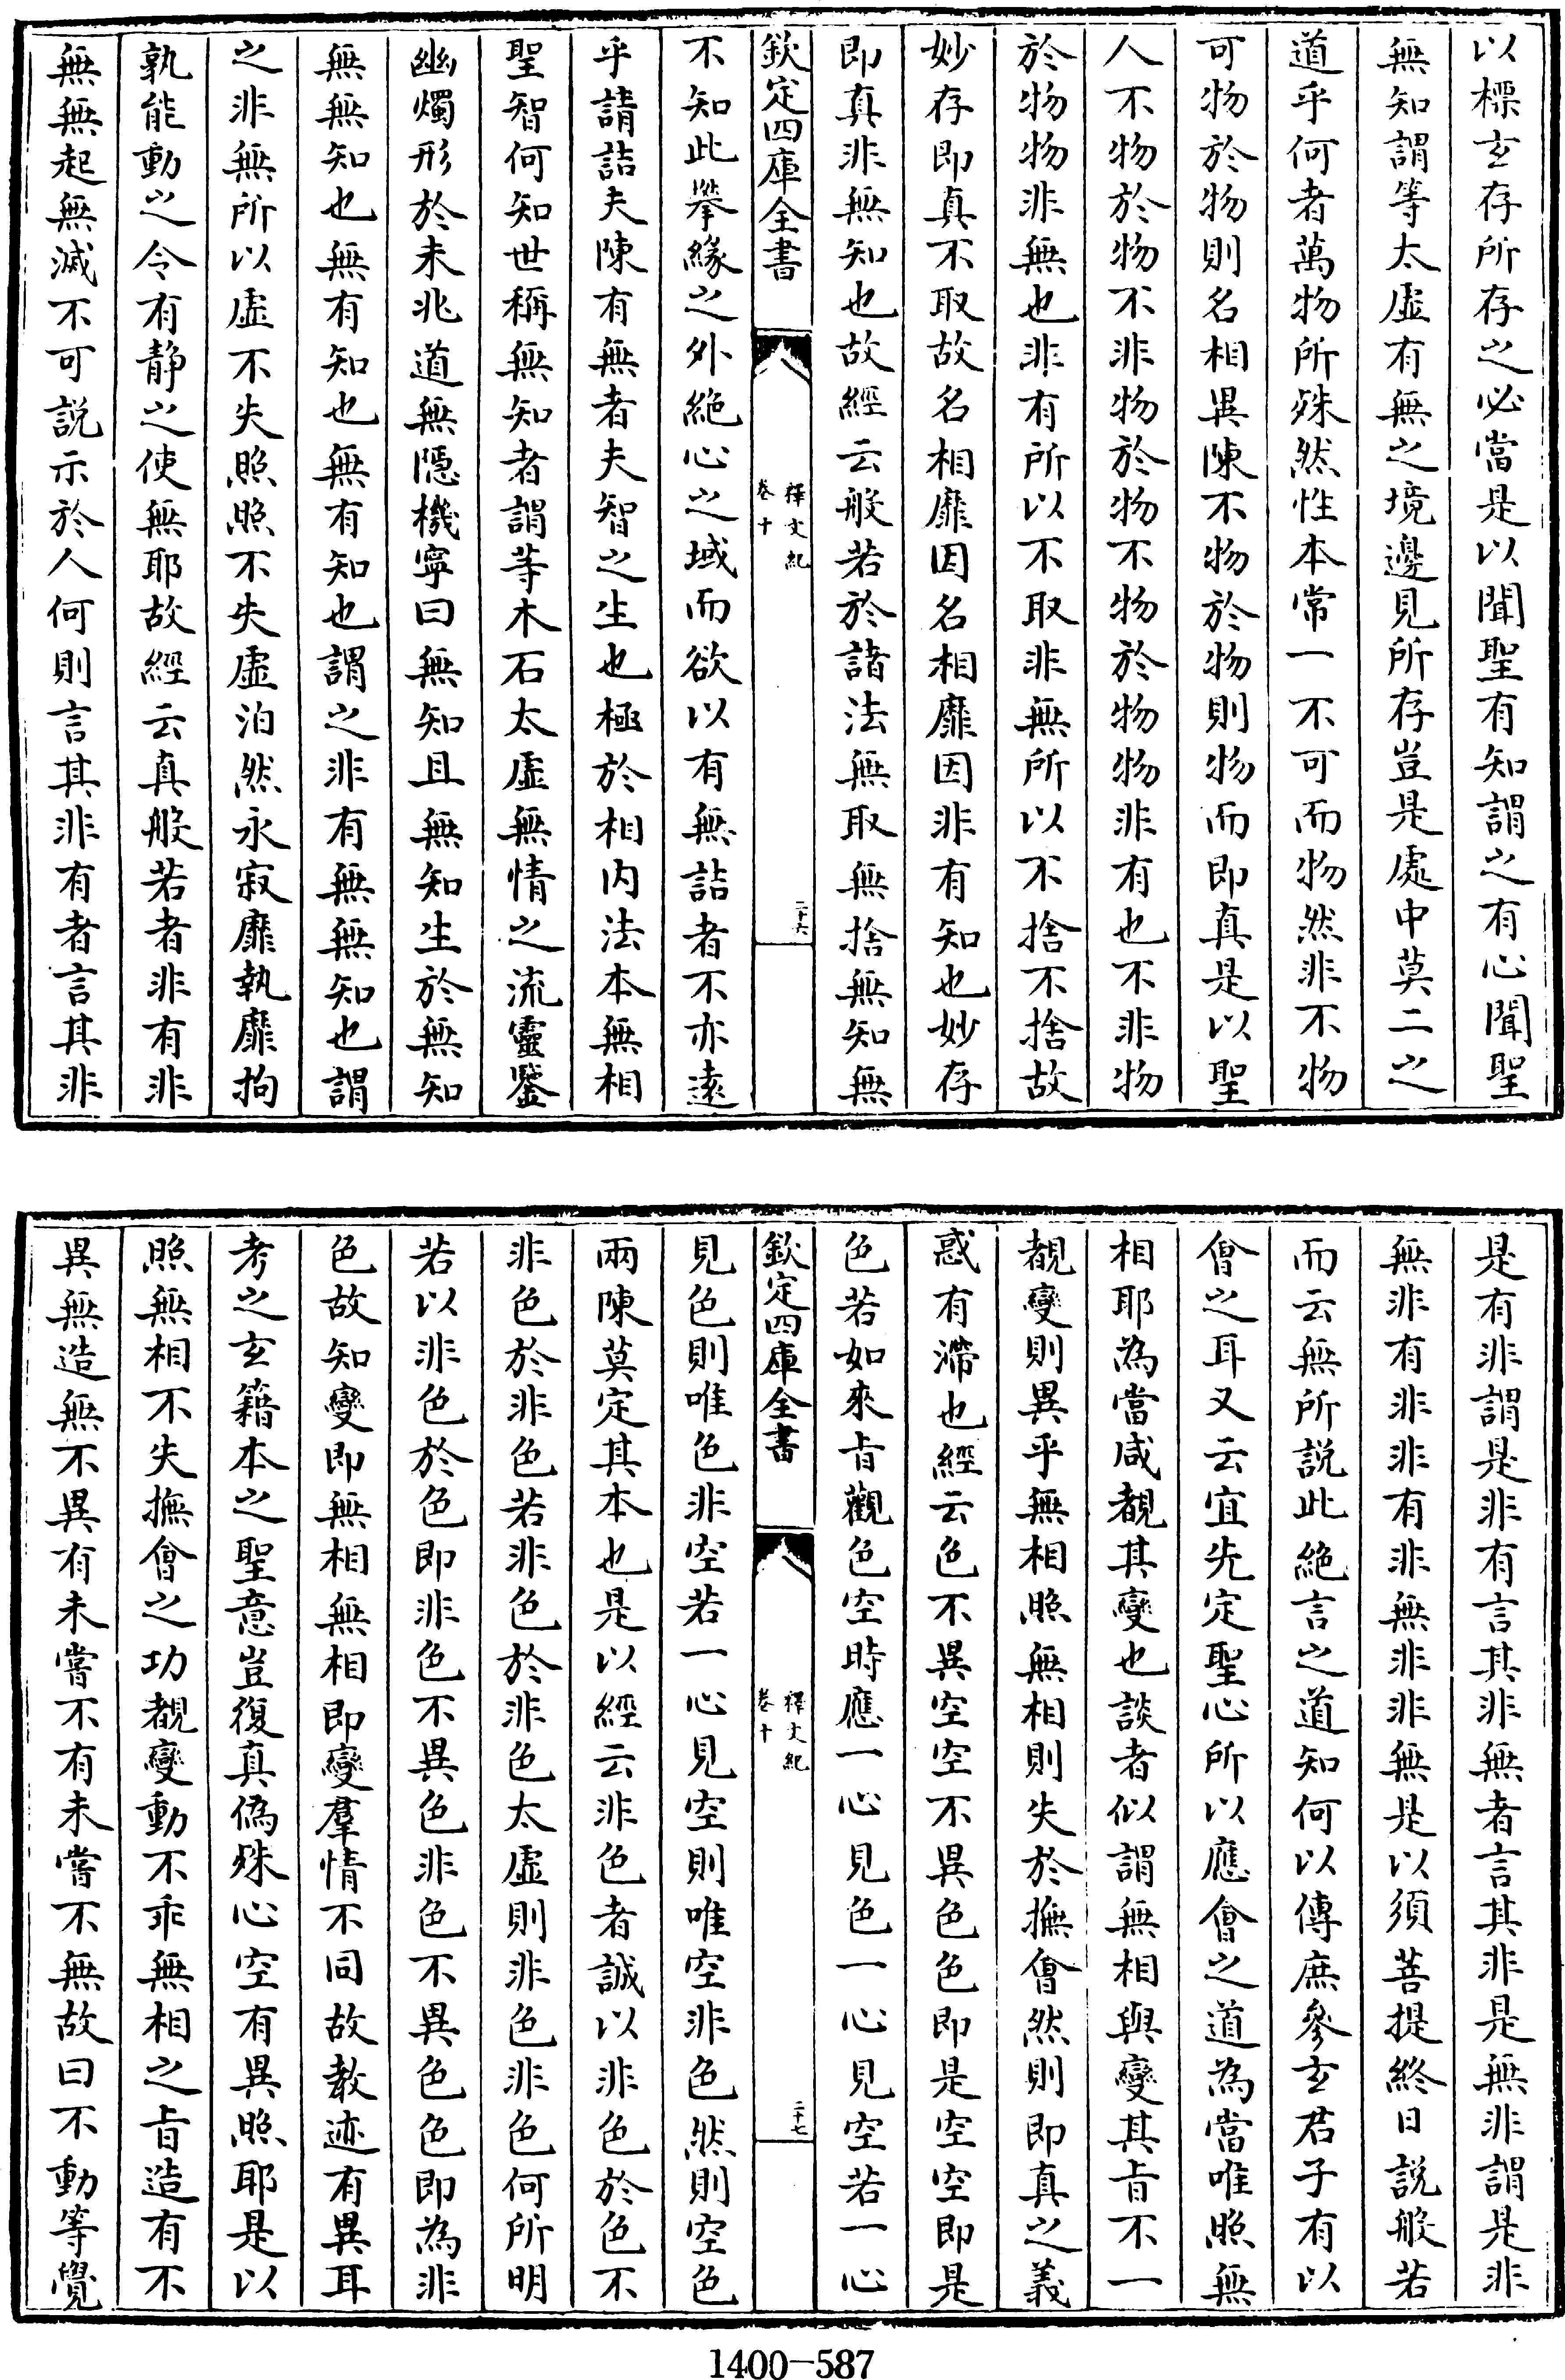 以標玄存所存之必當是以聞聖有知謂之有心聞聖
無知謂等太虛有無之境邊見所存豈是處中莫二之
道乎何者萬物所殊然性本常一不可而物然非不物
可物於物則名相異陳不物於物則物而即真是以聖
人不物於物不非物於物不物於物物非有也不非物
於物物非無也非有所以不取非無所以不捨不捨故
妙存即真不取故名相靡因名相靡因非有知也妙存
即真非無知也故經云般若於諸法無取無捨無知無
欽定四庫全書
釋文紀
卷十
二十六
不知此攀緣之外絶心之域而欲以有無詰者不亦遠
乎請詰夫陳有無者夫智之生也極於相内法本無相
聖智何知世稱無知者謂等木石太虛無情之流靈鑒
幽燭形於未兆道無隱機寧曰無知且無知生於無知
無無知也無有知也無有知也謂之非有無無知也謂
之非無所以虛不失照照不失虛泊然永寂靡執靡拘
孰能動之令有静之使無耶故經云真般若者非有非
無無起無滅不可説示於人何則言其非有者言其非
是有非謂是非有言其非無者言其非是無非謂是非
無非有非非有非無非非無是以須菩提終日説般若
而云無所説此絶言之道知何以傳庶參玄君子有以
會之耳又云宜先定聖心所以應會之道為當唯照無
相耶為當咸覩其變也談者似謂無相與變其㫖不一
覩變則異乎無相照無相則失於撫會然則即真之義
惑有滯也經云色不異空空不異色色即是空空即是
色若如來㫖觀色空時應一心見色一心見空若一心
欽定四庫全書
釋文紀
卷十
二十七
見色則唯色非空若一心見空則唯空非色然則空色
兩陳莫定其本也是以經云非色者誠以非色於色不
非色於非色若非色於非色太虛則非色非色何所明
若以非色於色即非色不異色非色不異色色即為非
色故知變即無相無相即變羣情不同故教迹有異耳
考之玄籍本之聖意豈復真偽殊心空有異照耶是以
照無相不失撫會之功覩變動不乖無相之㫖造有不
異無造無不異有未嘗不有未嘗不無故曰不動等覺
1400—587